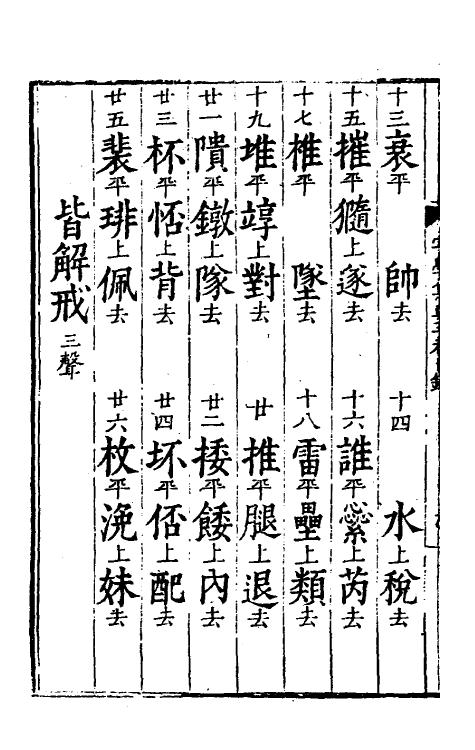 十三衰平　帥去
十四　水上稅去
十五摧平𤢂上邃去
十六誰平惢上芮去
十七椎平　墜去
十八雷平壘上類去
十九堆平䇏上對去
廿推平腿上退去
廿一隤平鐓上隊去
廿二捼平餧上內去
廿三杯平㤳上背去
廿四坏平俖上配去
廿五裴平琲上佩去
廿六枚平浼上妹去
皆解戒三聲